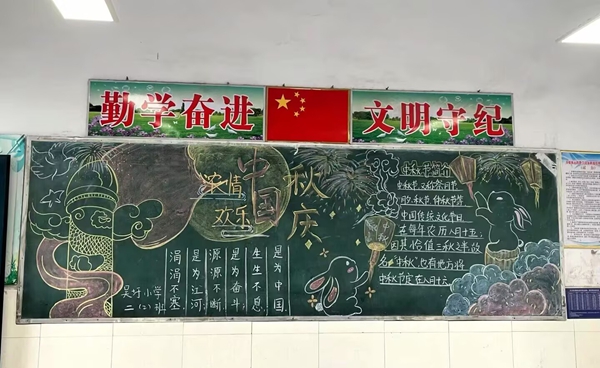 勤学奋进
文明守纪
浓情
中国
秋
欢乐
庆
涓涓不塞
是为江河
源源不断
是为奋斗
生生不息
是为中国
吴圩小学
二(2)班
中秋节简介
中秋节又称
节
中国传统文化节日
在每年农历八月十五
因其恰值三秋之半故
名"中秋"也有地方将
中秋节定在八月十六